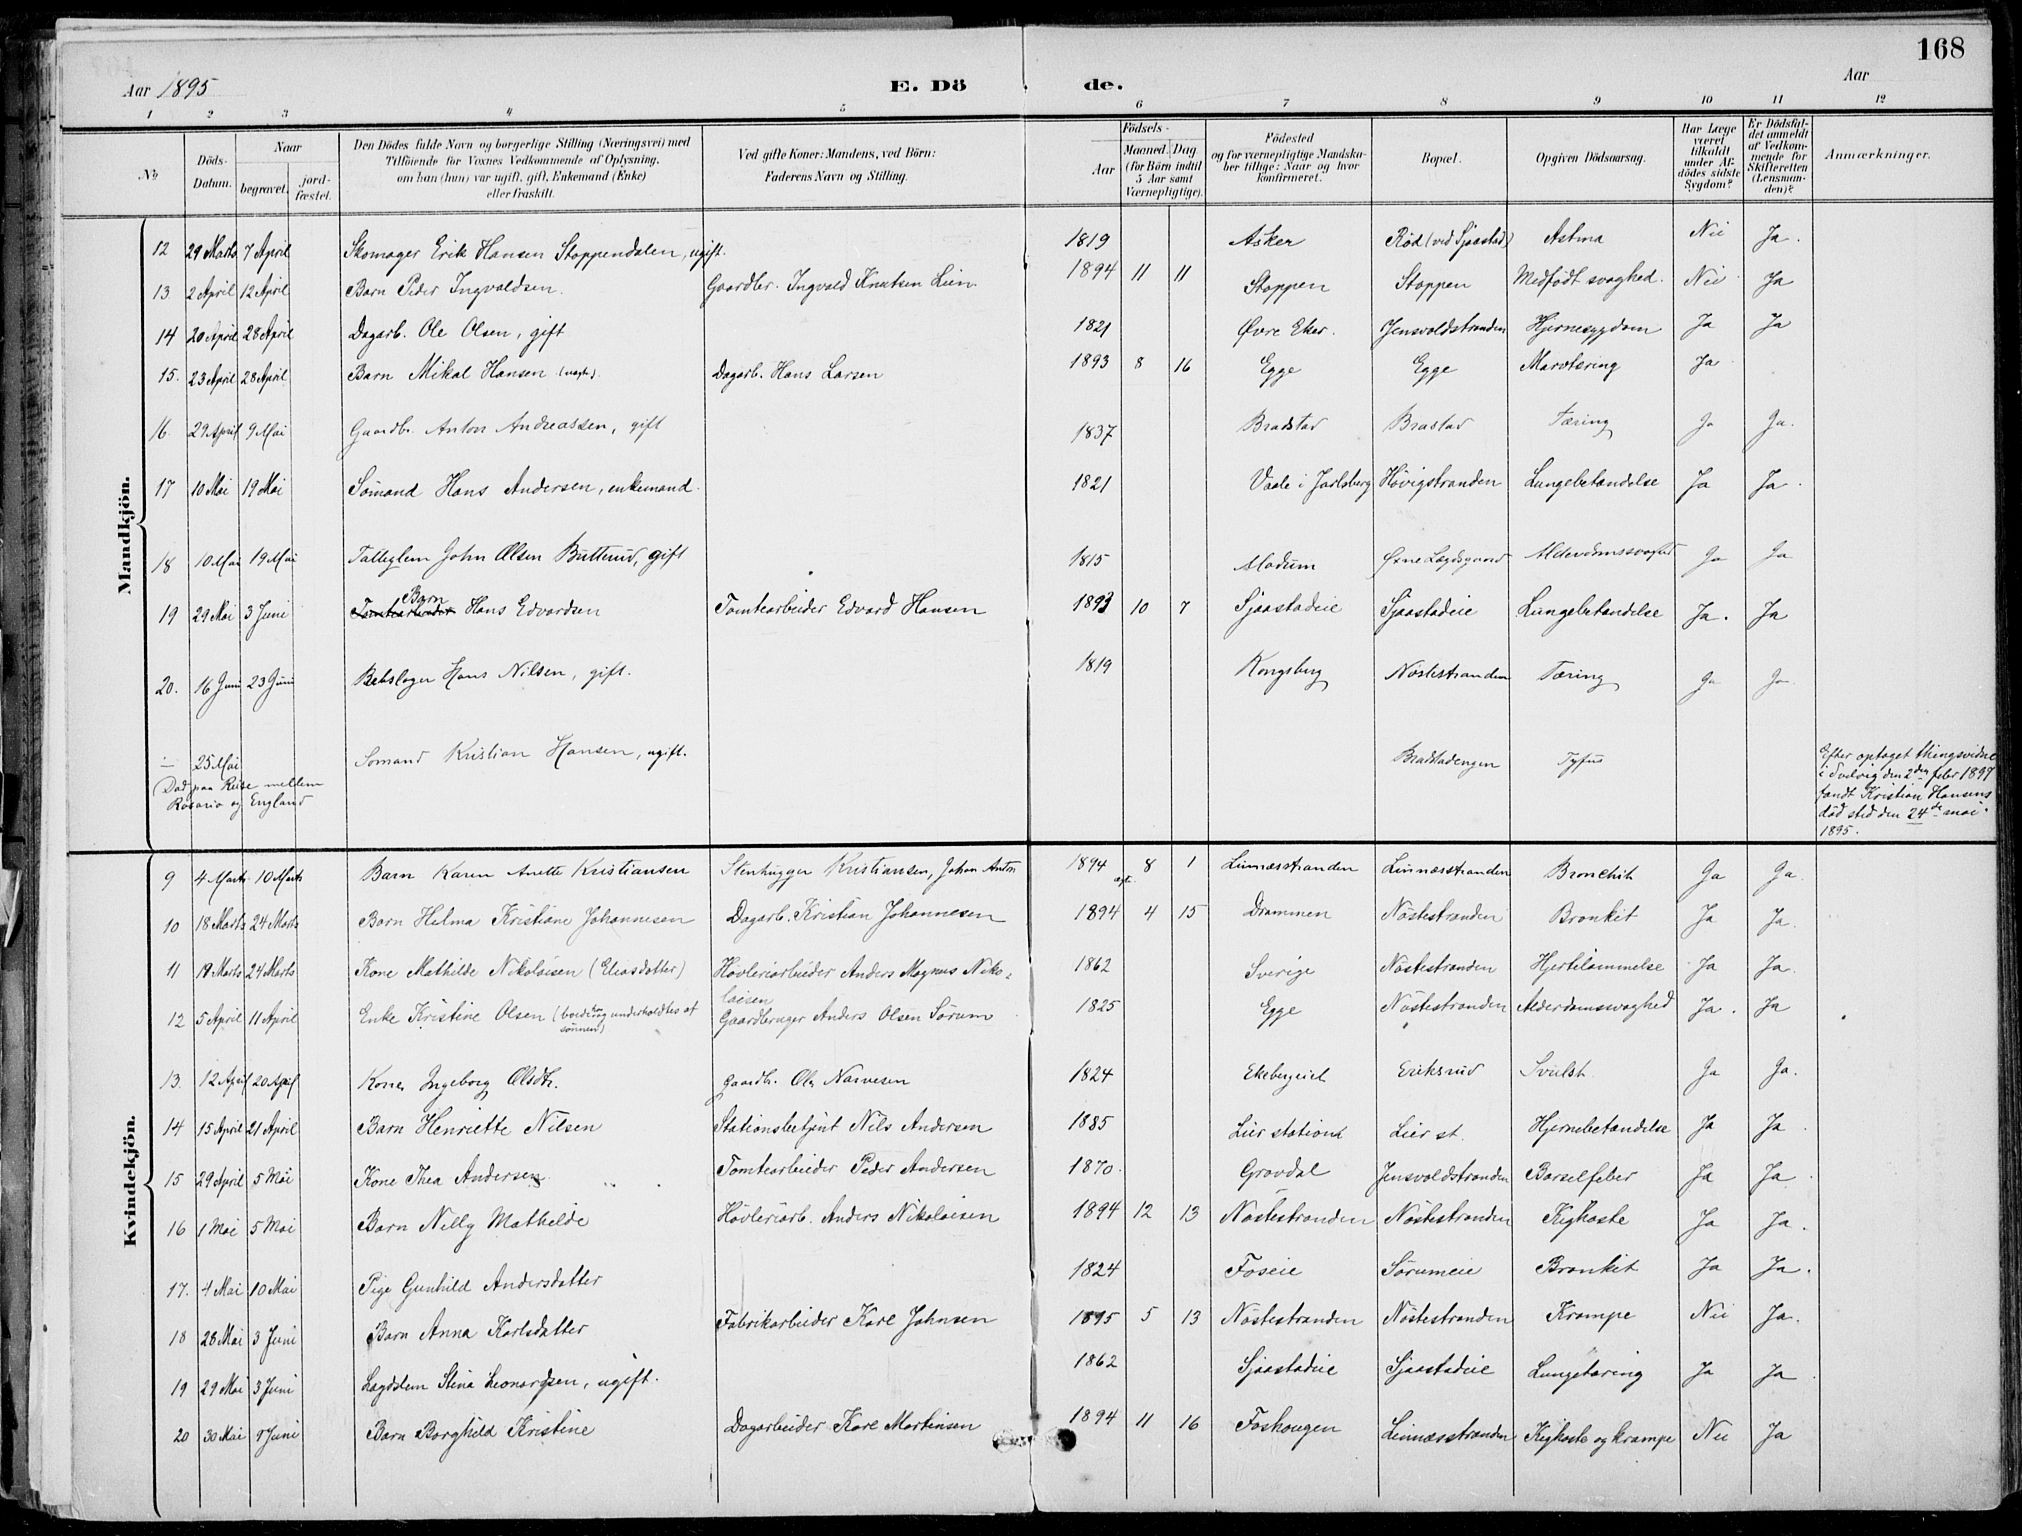 168
Aar 1895 E. Dö de. Aar
1 2 3 4 5 6 7 8 9 10 11 12
No
Döds-Datum.
Naar
begravet.
jord-fæstet.
Den Dödes fulde Navn og borgerlige Stilling (Næringsvei) med
Tilföiende for Voxnes Vedkommende af Oplysning,
om han (hun) var ugift, gift, Enkemand (Enke)
eller fraskilt.
Ved gifte Koner: Mandens, ved Börn:
Faderens Navn og Stilling.
Födsels-
Aar
Maaned. Dag
(for Börn indtil
5 Aar samt
Værnepligtige).
Födested
og for værnepligtige Mandska-
ber tillige: Naar og hvor
konfirmeret.
Bopæl.
Opgiven Dödsaarsag.
Har Læge
været
tilkaldt
under Af-
dödes sidste
Sygdom?
Er Dödsfal-
det anmeldt
af Vedkom-
mende for
Skifteretten
(Lensman-
den)?
Anmærkninger.
Mandkjön.
12 29 Marts 7 April Skomager Erik Hansen Stoppendalen, ugift. 1819 Asker Röd (ved Sjaastad) Astma Nei Ja.
13. 2 April 12 April Barn Peder Ingvaldsen. Gaardbr. Ingvald Knutsen Lien 1894 11 11 Stoppen Stoppen Medfödt svaghed. Nei Ja
14 20 April 28 April Dagarb. Ole Olsen, gift 1821 Øvre Eker. Jensvoldstranden Hjernesygdom Ja Ja
15. 23 April 28 April Barn Mikal Hansen Dagarb. Hans Larsen 1893 8 16 Egge Egge Ja
16. 29 April 9 Mai Gaardbr. Anton Andreassen, gift 1837 Bradstad Brastad Tæring Ja Ja.
17 10 Mai 19 Mai Sömand Hans Andersen, enkemand. 1821 Vaale i Jarlsberg Hövigstranden Lungebetændelse Ja Ja.
18 10 Mai 19 Mai John Olsen Butterud, gift 1815 Modum Øxne Lægdsgaard Alderdomssvaghed Ja Ja
19 29 Mai 3 Juni Tomtearbeider Barn Hans Edvardsen Tomtearbeider Edvard Hansen 1893 10 7 Sjaastadeie Sjaastadeie Lungebetændelse Ja. Ja
20. 16 Juni 23 Juni Rebslager Hans Nilsen, gift. 1819 Kongsberg Nöstestranden Tæring Ja Ja.
25 Mai Sömand Kristian Hansen, ugift. Bradstadengen Tyfus
(Död paa Reise mellem
Rosario og England
Efter optaget thingsvidne
i Svelvig den 2den febr 1897
fandt Kristian Hansens
död sted den 24de mai
1895.
Kvindekjön.
9 4 Marts 10 Marts Barn Karen Anette Kristiansen Stenhugger Kristiansen, Johan Anton 1894 8 1 Linnæsstranden Linnæsstranden Bronchit Ja Ja.
10 18 Marts 24 Marts Barn Helma Kristiane Johannesen Dagarb. Kristian Johannesen 1894 4 15 Drammen Nöstestranden Bronkit Ja Ja.
11 19 Marts 24 Marts Kone Mathilde Nikolaisen (Eliasdatter) Hövleriarbeider Anders Magnus Niko-
laisen 1862 Sverige Nöstestranden Hjertelammelse Ja Ja.
12 5 April 11 April Enke Kristine Olsen underholdtes af
sönnen) Gaardbruger Anders Olsen Sörum 1825 Egge Nöstestranden Alderdomssvaghed Ja. Ja
13. 12 April 20 April Kone Ingeborg Olsdtr. Gaardbr. Ole Narvesen 1824 Ekebergeiet Eriksrud Svulst Ja Ja.
14 15 April 21 April Barn Henriette Nilsen Stationsbetjent Nils Andersen 1885 Lier station Lier st. Hjernebetændelse Ja Ja
15 29 April 5 Mai Kone Thea Andersen Tomtearbeider Peder Andersen 1870. Grovdal Jensvoldstranden Barselfeber Ja Ja
16 1 Mai 5 Mai Barn Nelly Mathilde Hövleriarb. Anders Nikolaisen 1894 12 13 Nöstestranden Nöstestranden Kighoste Ja Ja.
17. 4 Mai 10 Mai Pige Gunhild Andersdatter 1824 Foseie Sörumeie Bronkit Ja Ja.
18 28 Mai 3 Juni Barn Anna Karlsdatter Fabrikarbeider Karl Johnsen 1895 5 13 Nöstestranden Nöstestranden Krampe Nei Ja.
19 29 Mai 3 Juni Lægdslem Stina Leonardsen, ugift. 1862 Sjaastadeie Sjaastadeie Lungetæring Ja Ja
20 30 Mai Juni Barn Borghild Kristine Dagarbeider Karl Martinsen 1894 11 16 Foshougen Linnæsstranden Kighoste og krampe Nei Ja